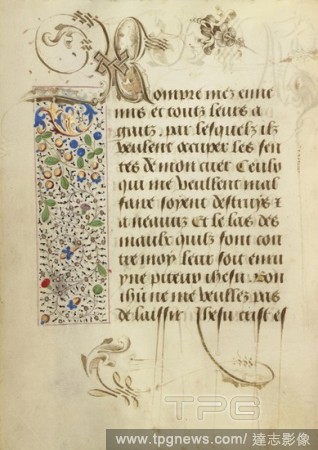 Rompre mez enne
mis et toutz leurs a
guitz, par lesquelz ilz
veullent occuper les sen
tes de mon cuer Ceulx
qui me veullent mal
faire soyent destruys &
a neantz Et le las des
maulx quilz font con
tre moy leur soit ennu
yne piteux Jhesu Bon
Jhu ne me veullez pas
de laissir Jhesu cristes
TPG
www.tpgnews.com/ 達志影像